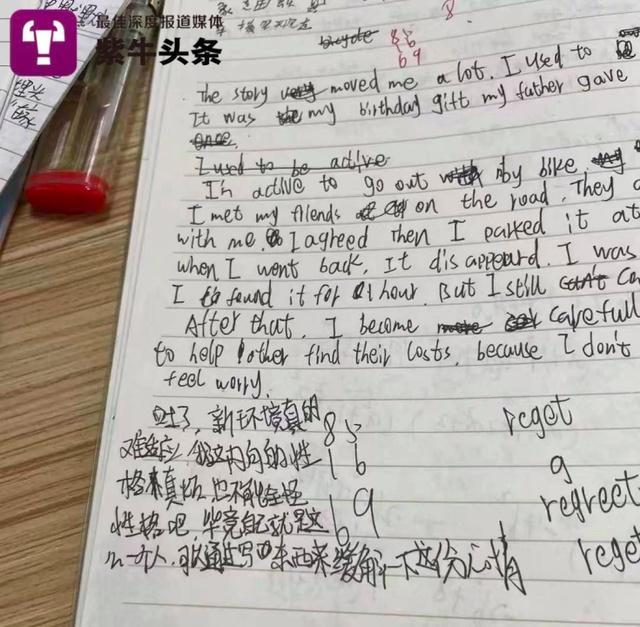 最佳深度报道媒体
紫牛头条
bicycle
85
69
8
The story moved me a lot. I used to
It was my birthday gift my father gave
I used to be active
In active to go out by bike.
I met my friends on the road. They
with me. I agreed then I parked it at
when I went back. It disappeard. I was
I found it for 1 hour. But I still can't
After that, I become more carefull
to help other find their losts, because I don't
feel worry.
吐了，新环境真的
难适应，我这内向的性
格真 也不能全怪
性格吧，毕竟自己就是这
么一个人，可以通过写 东西来缓解一下这份心情
85
16
69
reget
g
regreet
reget